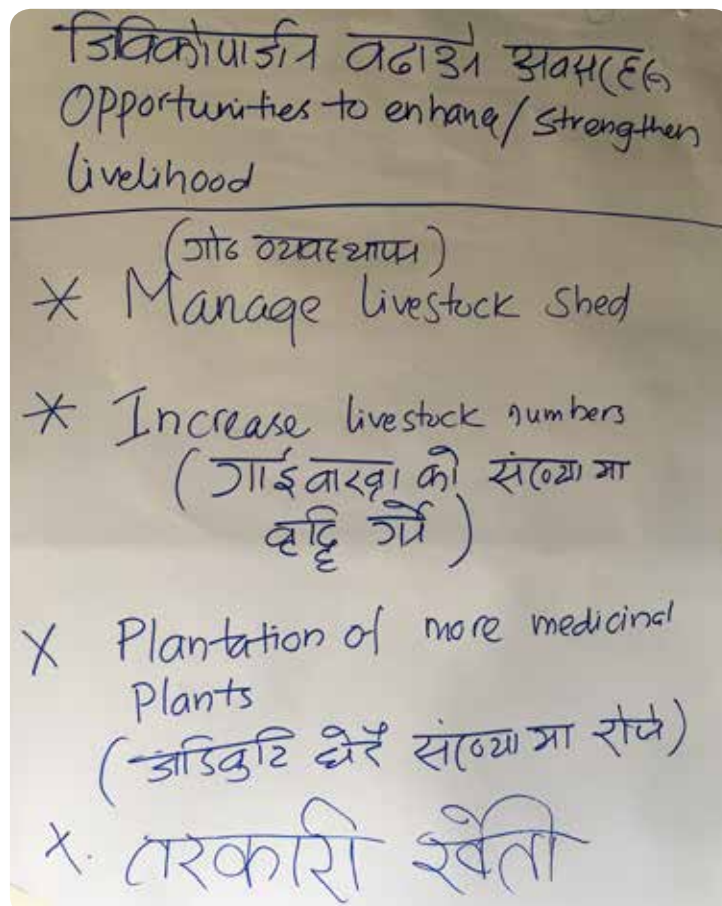 जिविकोपार्जन बढाउने अवसरहरू
Opportunities to enhance/strengthen
livelihood
(गोठ व्यवस्थापन)
* Manage livestock shed
* Increase livestock numbers
(गाईवाख्रा को संख्या मा
वृद्धि गर्ने)
X Plantation of more medicinal
Plants
(जडिबुटि धेरै संख्या मा रोप्ने)
X. तरकारी खेती